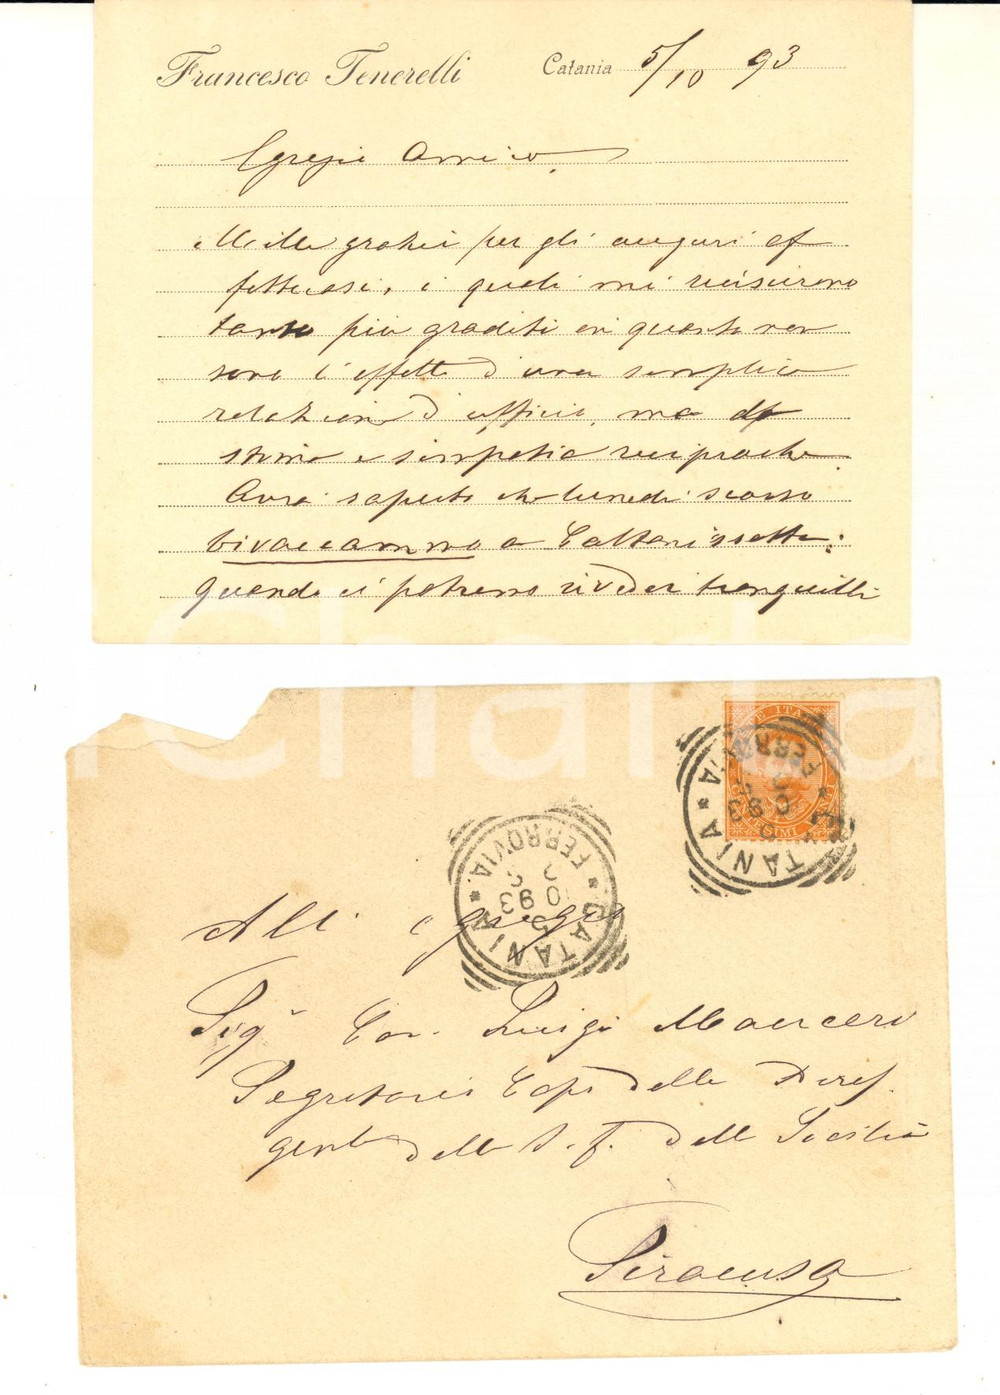 Francesco Tenerelli
Catania 5/10 93
Egregio Amico.
Mille grazie per gli auguri af
fettuosi, i quali mi riuscirono
tanto più graditi in quanto non
sono l'effetto d'una semplice
relazione d'ufficio, ma di
stima e simpatia reciproche.
Avrà saputo che lunedì scorso
bivaccammo a Caltanissetta:
quando ci potremo rivedere tranquilli
CATANIA * FERROVIA *
5
10 93
CATANIA * FERROVIA *
5
10 93
All' egregio
Sig.r Cav. Luigi Mauceri
Segretario Capo delle
gente delle S. F. della Sicilia
Siracusa
Charta